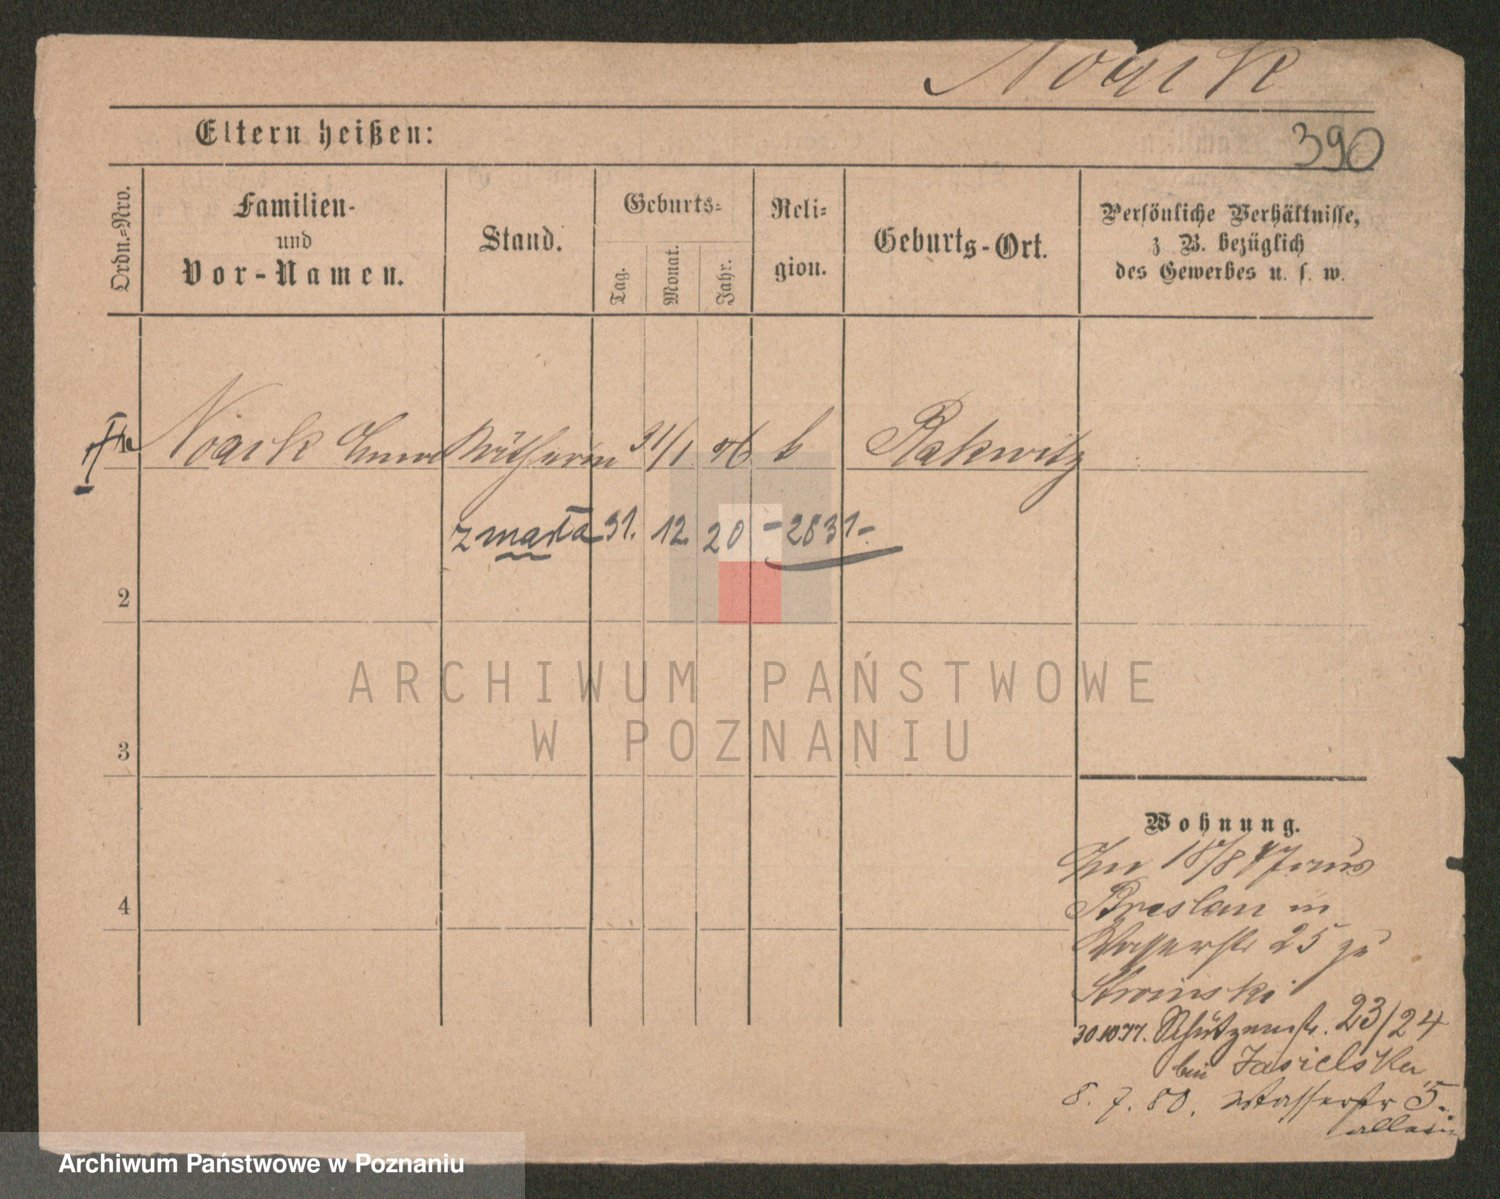 Noack
Eltern heißen:
390
Ordn.-Nro.
Familien-
und
Vor-Namen.
Stand.
Geburts-
Tag.
Monat.
Jahr.
Reli-
gion.
Geburts-Ort.
Persönliche Verhältnisse,
z. B. bezüglich
des Gewerbes u. s. w.
Noack 31/1 56 Rakwitz
zmarła 31. 12. 20 - 2831-
2
3
4
ARCHIWUM PAŃSTWOWE
W POZNANIU
Wohnung.
18/8 77 aus
Breslau in
Wasserstr 25 zu
30.10.77. Schützenstr. 23/24
bei Jasielska
8. 7. 80. Wasserstr 5.
allein
Archiwum Państwowe w Poznaniu